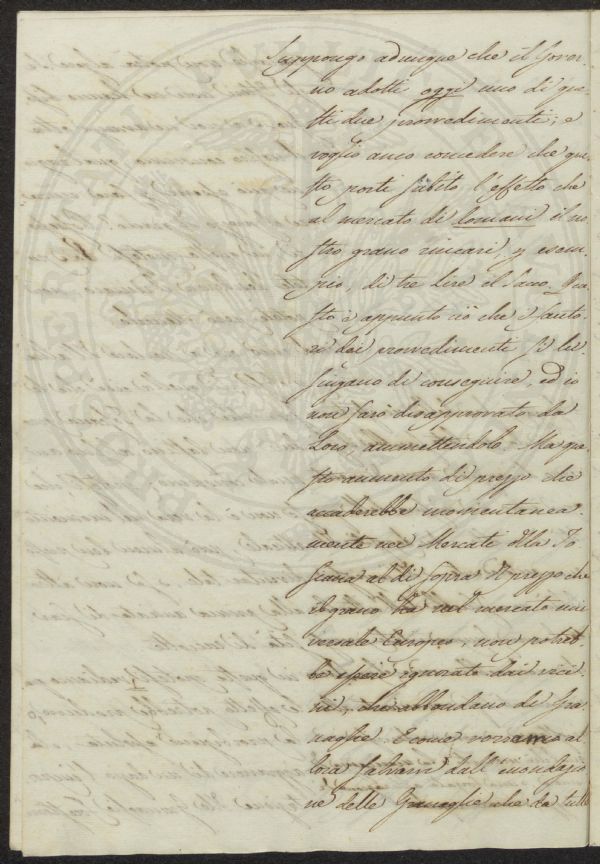 Suppongo adunque che il Gover-
no adotti oggi uno di que-
sti due provvedimenti; e
voglio anco concedere che que-
sto porti subito l'effetto che
al mercato di domani il no-
stro grano rincari, p esem-
pio, di tre lire il Sacco. Que-
sto è appunto ciò che gl'auto-
ri dei provvedimenti si lu-
singano di conseguire, ed io
non sarò disapprovato da
Loro, ammettendolo. Ma que-
sto aumento di prezzo che
accaderebbe momentanea-
mente nei Mercati della To-
scana al di sopra del prezzo che
il grano ha nel mercato uni-
versale Europeo, non potreb-
be essere ignorato dai vici-
ni, che abbondano di Gra-
naglie. E come vorremmo al-
lora salvarci dall'inondazio-
ne delle Granaglie che da tutte